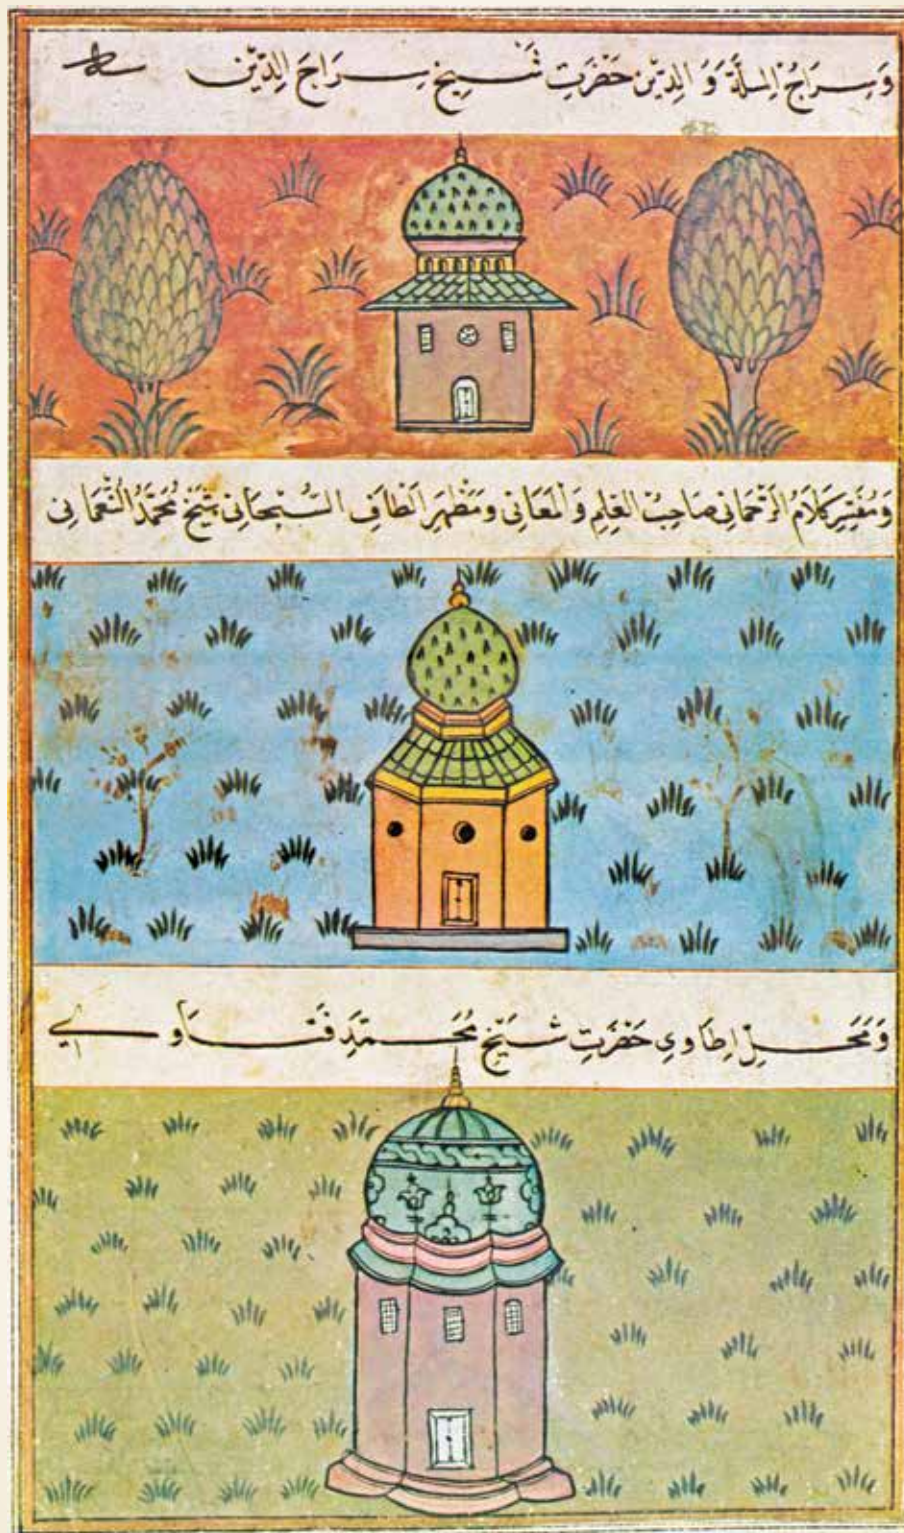 وَسِرَاجُ الْمِلَّةِ وَ الدِّيْن حَضْرَتِ شَيْخ سِرَاجَ الدِّيْن
وَمُفَسِّرِ كَلَامُ الرَّحْمَانِي صَاحِبُ الْعِلِمِ وَالْمَعَانِي وَمَظْهَرِ الْطَافِ السُّبْحَانِي شَيْخ مُحَمَّدُ النُّعْمَانِي
وَمَحَلِ حَضْرَتِ شَيْخ مُحَمَّدِ